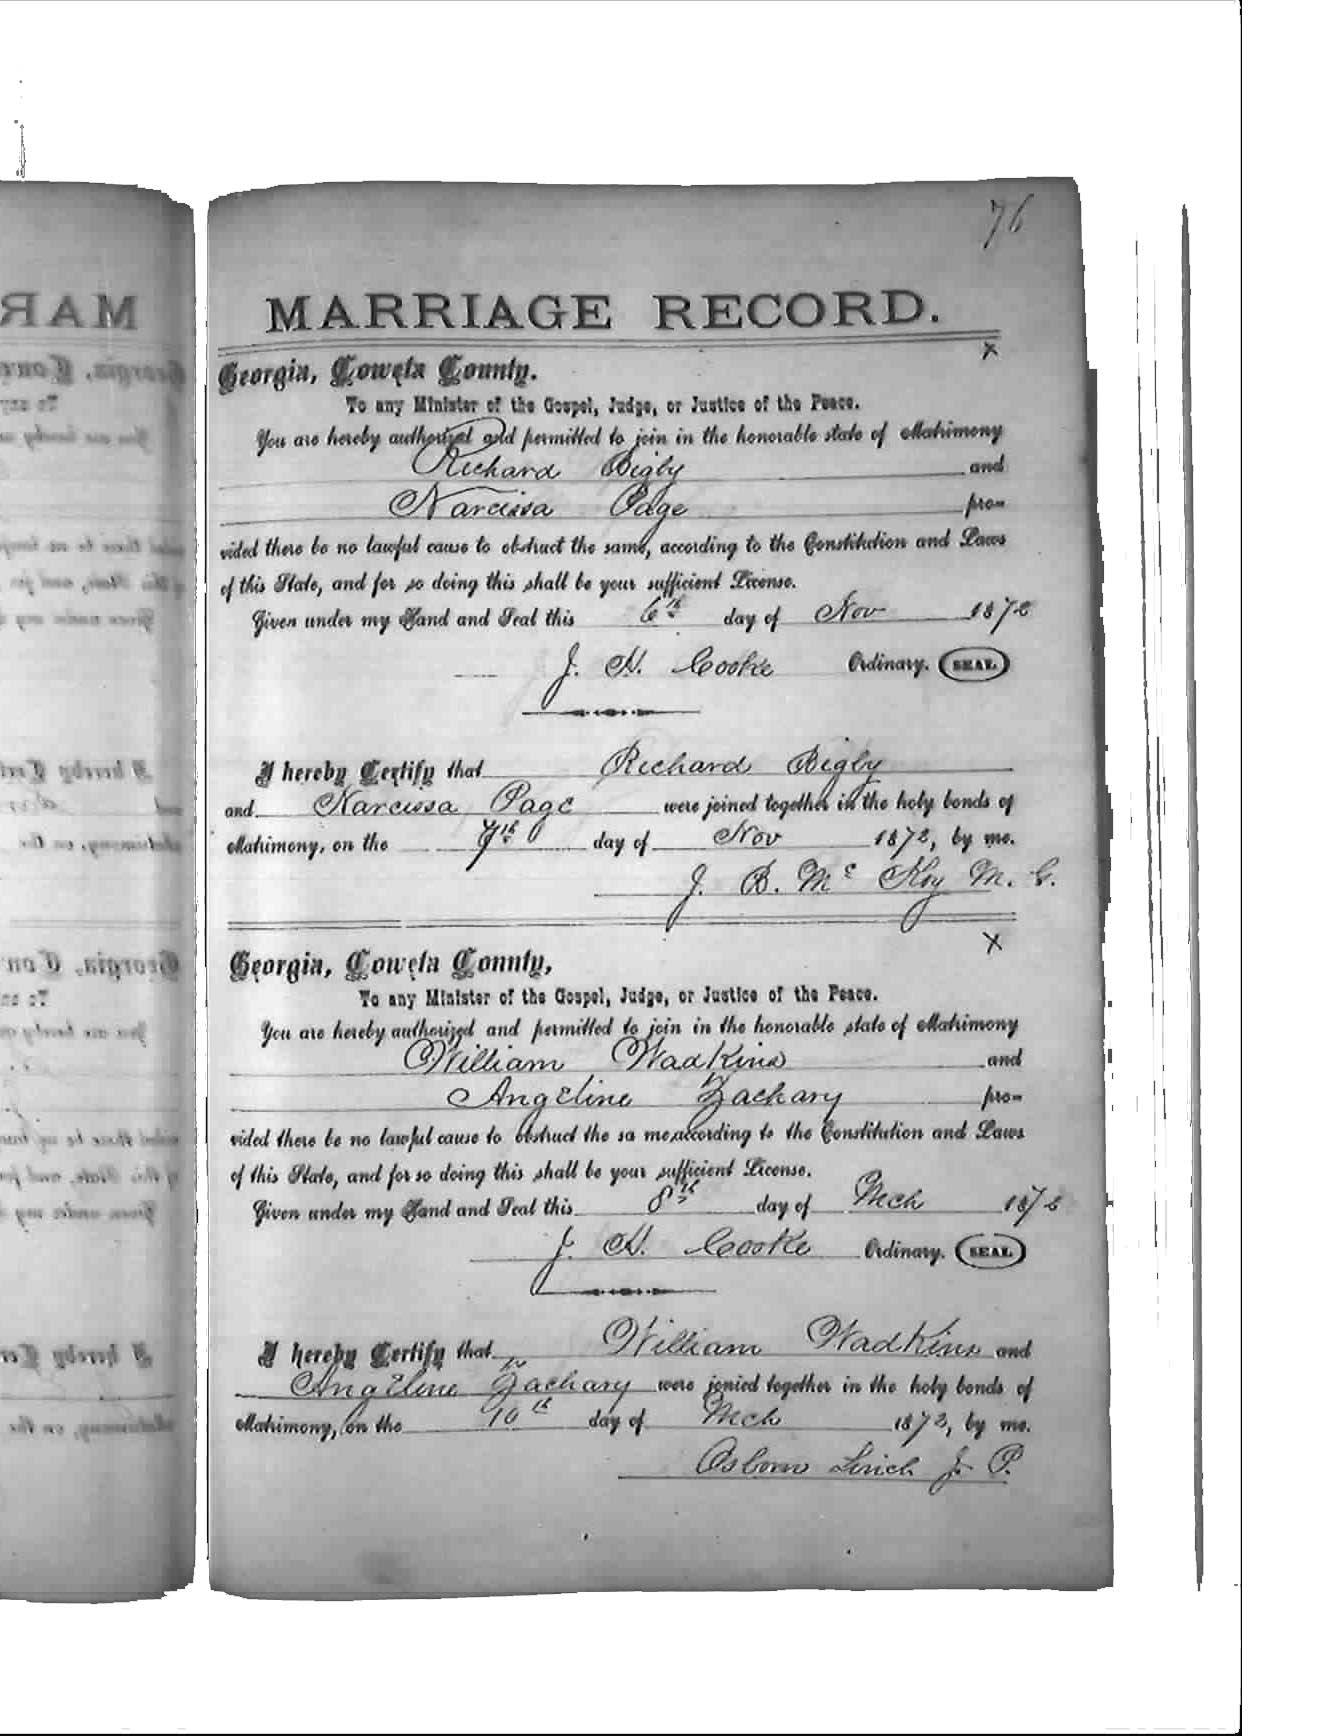 76
MARRIAGE RECORD.
x
Georgia, Coweta County.
To any Minister of the Gospel, Judge, or Justice of the Peace.
You are hereby authorized and permitted to join in the honorable state of Matrimony
Richard Bigby and
Narcissa Page pro-
vided there be no lawful cause to obstruct the same, according to the Constitution and Laws
of this State, and for so doing this shall be your sufficient License.
Given under my Hand and Seal this 6th day of Nov 1872
J. H. Cooke Ordinary. SEAL
I hereby Certify that Richard Bigby
and Narcissa Page were joined together in the holy bonds of
Matrimony, on the 7th day of Nov 1872, by me.
J. B. Mc Koy M. G.
x
Georgia, Coweta County,
To any Minister of the Gospel, Judge, or Justice of the Peace.
You are hereby authorized and permitted to join in the honorable state of Matrimony
William Wadkins and
Angeline Zachary pro-
vided there be no lawful cause to obstruct the sa me, according to the Constitution and Laws
of this State, and for so doing this shall be your sufficient License.
Given under my Hand and Seal this 8th day of Mch 1872
J. H. Cooke Ordinary. SEAL
I hereby Certify that William Wadkins and
Angeline Zachary were jonied together in the holy bonds of
Matrimony, on the 10th day of Mch 1872, by me.
Osborn Linch J. P.